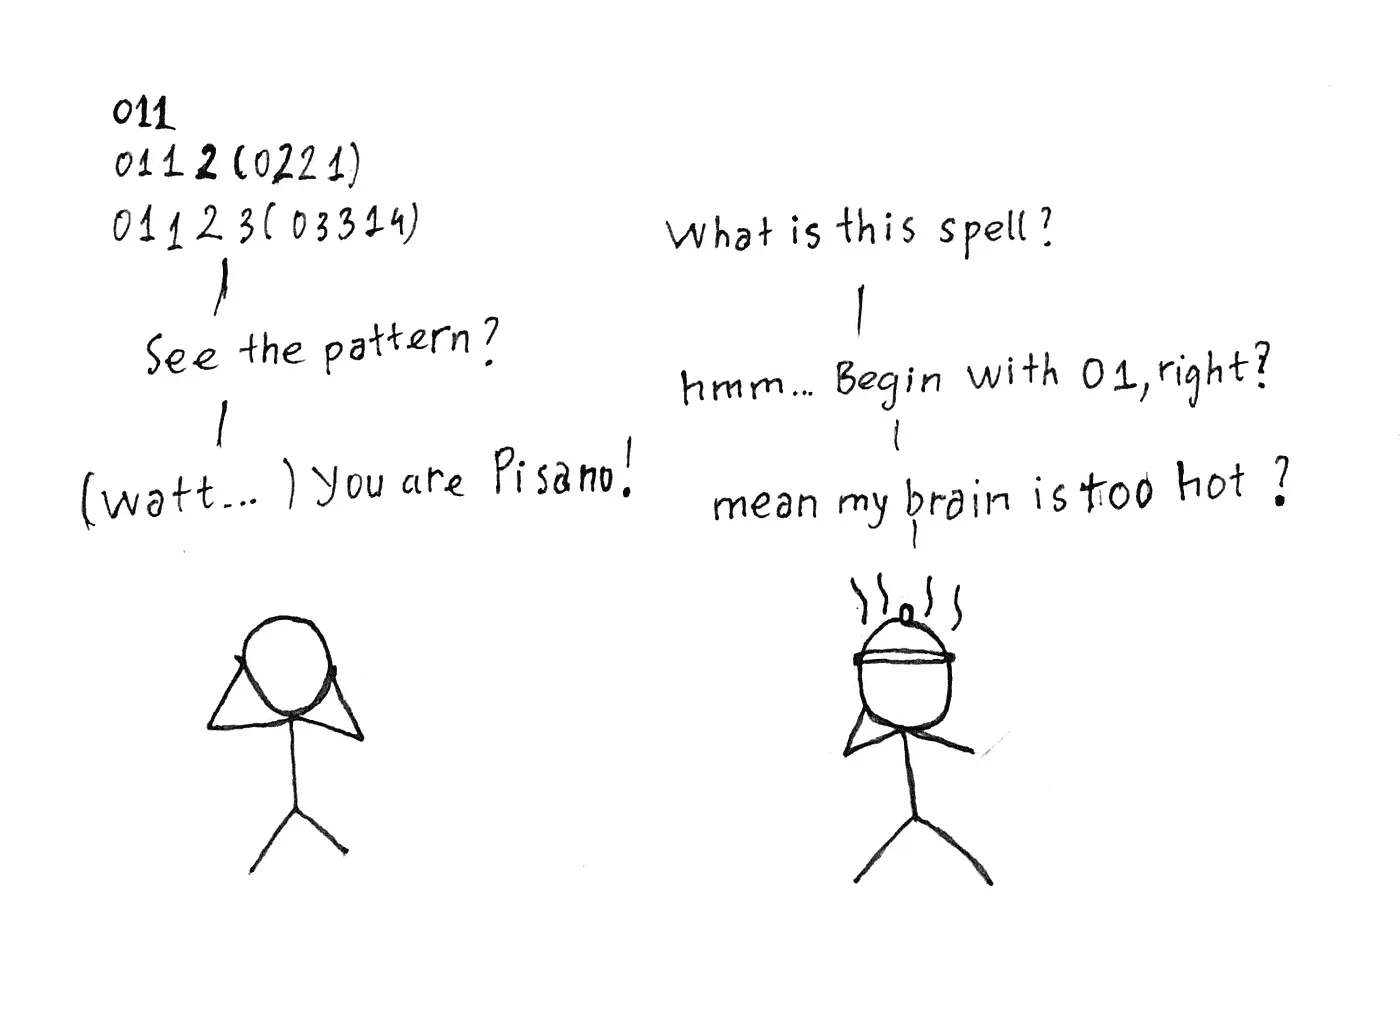 011
0112(0221)
01123(03314)
See the pattern?
(watt...) You are Pisano!
What is this spell?
hmm... Begin with 01, right?
mean my brain is too hot?